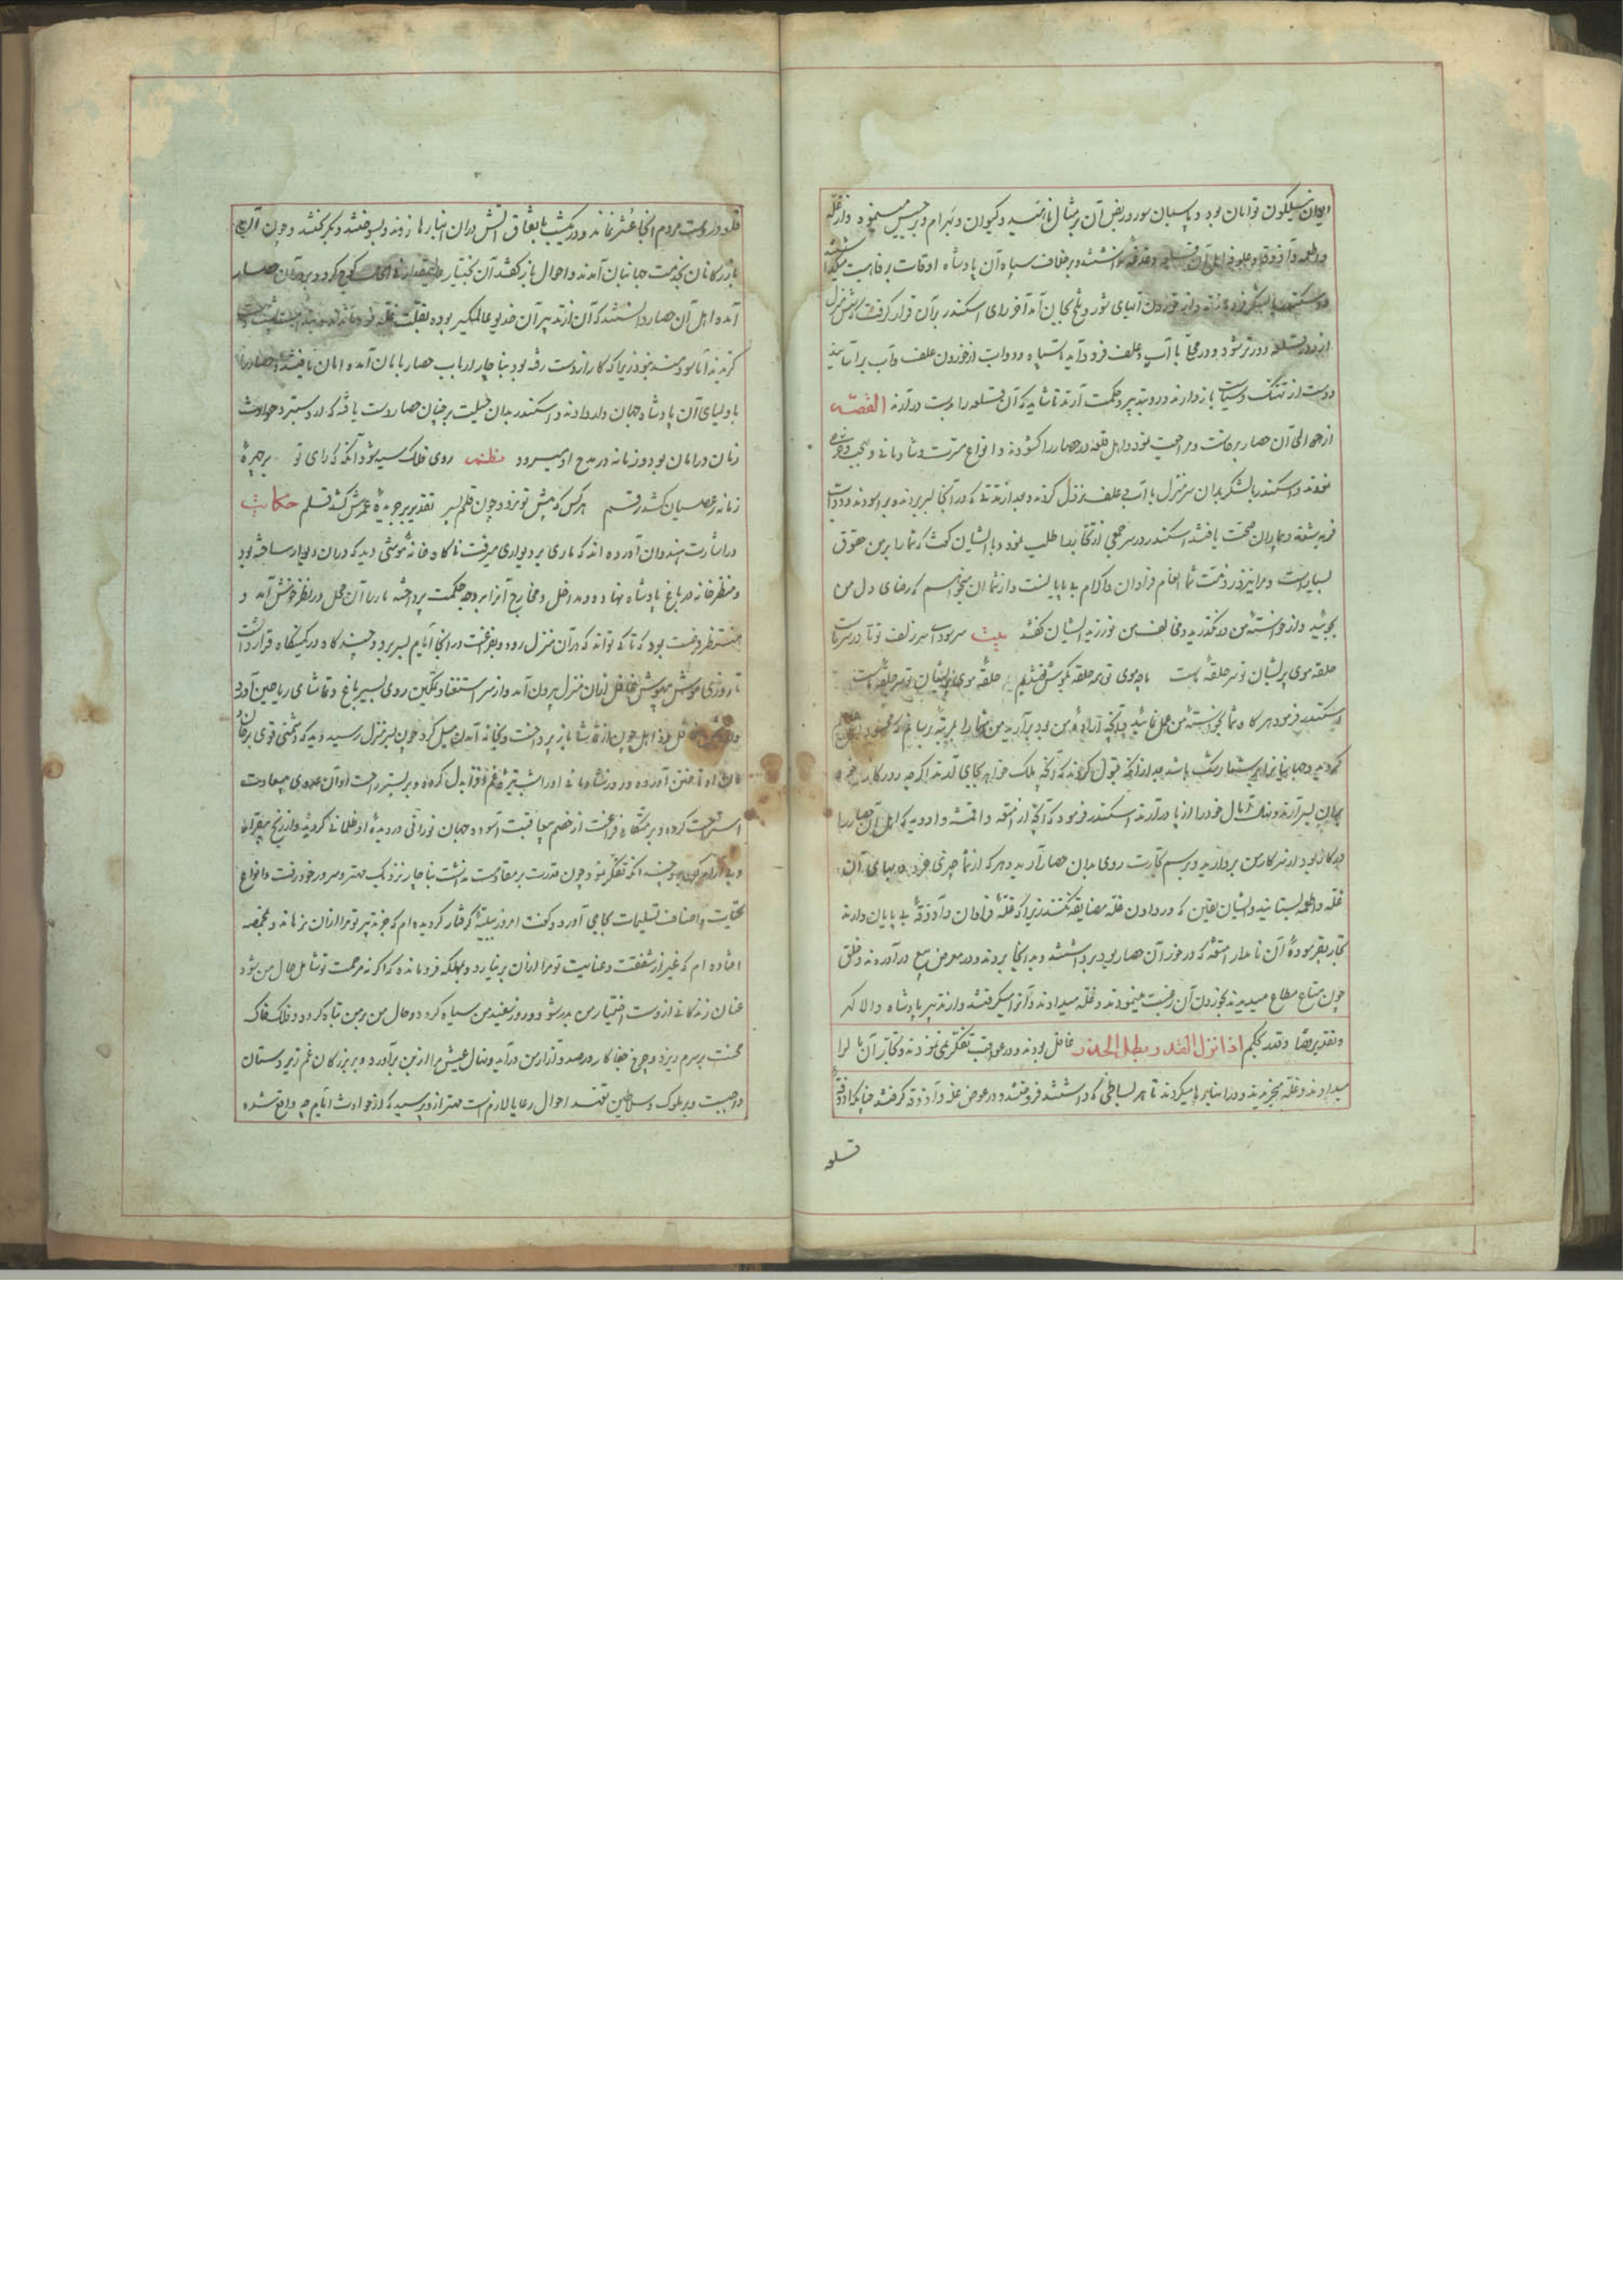 ایوان نیلگون توامان بود و پاسبان سور و ربض آن بر مثال ناهید و کیوان و بهرام و برجیس مینمود و از غله
و اطعمه و آذوقه و علوفه اهل آن قلعه دغدغه نداشتند و برخلاف سپاه آن پادشاه اوقات برفاهیت میگذاشتند
و اسکندر با لشکر فرومانده و از خوردن آبهای شور و تلخ بجان آمد آخر رای اسکندر بر آن قرار گرفت که از منزل
از دور قلعه دورتر شود و در محلی با آب و علف فرود آید تا سپاه و دواب از خوردن علف و آب برآسایند
و دست از تفنگ و سیاست باز دارند و رو بتدبیر و حکمت آرند تا شاید که آن قلعه را بدست درآرند القصه
از حوالی آن حصار برخاست و مراجعت نمود و اهل قلعه در حصار را گشودند و انواع مسرت و شادمانی
نمودند و اسکندر با لشکر بدان سرمنزل با آب و علف نزول کردند و بعد از مدتی که در آنجا بسر بردند و برآسودند و دواب
فربه شدند و بیماران صحت یافتند اسکندر در سر جمعی از تجار را طلب نمود و با ایشان گفت که شما را بر من حقوق
بسیار است و مرا نیز در ذمت شما انعام فراوان و اکرام بی پایانست و از شما آن میخواهم که رضای دل من
بجوئید و از خواسته من درنگذرید و مخالفت من نورزید ایشان گفتند بیت سر سودای سر زلف تو تا در سر ماست
حلقه موی پریشان تو سر حلقه ماست با چو موی تو همه حلقه بگوش افتادیم حلقه موی پریشان تو سر حلقه ماست
اسکندر فرمود هرگاه شما بخواسته من عمل نمائید و آنچه اراده من بود برآرید من شما را بمرتبه رسانم که محسود
گردید و جهانیان را بر شما رشک باشد بعد از آنکه قبول کردند که آنچه ملک خواهد بجای آورند اگرچه روزگار
بدان بسر آرند و نهال آمال خود را از پا درآرند اسکندر فرمود که آنچه از امتعه و اقمشه و ادویه که اهل آن حصار را
در کار بود از سرکار من بردارید و برسم تجارت روی بدان حصار آرید و هر که از شما چیزی خرد بهای آن
غله و اطعمه بستانید و ایشان یقین که در دادن غله مضایقه نکنند زیرا که غله فراوان و آذوقه بی پایان دارند
تجار بفرموده آن نامدار امتعه که در خور آن حصار بود برداشتند و بدانجا بردند و در معرض بیع درآوردند و خلق
چون متاع مطاع میدیدند بخریدن آن رغبت مینمودند و غله میدادند و آنرا میگرفتند و از تدبیر پادشاه والاگهر
و تقدیر قضا و قدر بحکم اذا نزل القدر بطل الحذر غافل بودند و در عواقب تفکر نمی نمودند و تجار آن کالا
میدادند و غله میخریدند و در انبارها میکردند تا هر بساطی که داشتند فروختند و در عوض غله و آذوقه گرفتند چنانکه آذوقه
قلعه
قلعه در دست مردم آنجا عشر نماند و در یکشب باتفاق آتش در آن انبارها زدند و بسوختند و بگریختند و چون آن
بازرگانان بخدمت جهانبان آمدند و احوال باز گفتند آن بختیار کوچ کرد و بر در آن حصار
آمده اهل آن حصار دانستند که آن از تدبیر آن خدیو عالمگیر بوده بقلت غله
گزیدند اما سودمند نبود زیرا که کار از دست رفته بود بناچار ارباب حصار بامان آمدند امان یافتند و حصار را
باولیای آن پادشاه جهان دلدار دادند و اسکندر بدان حیلت بر چنان حصار دست یافت که از دستبرد حوادث
زمان در امان بود و زمانه در مدح او میسرود نظم روی فلک سیه شود آنگه که رای تو بر چهره
زمانه ز عصیان کشد رقم هر کس که پیش تو نرود چون قلم بسر تقدیر بر جریده عمرش کشد قلم حکایت
در اشارت هندوان آورده اند که ماری بر دیواری میرفت ناگاه خانه موشی دید که در بن دیوار ساخته بود
و منظر خانه در باغ پادشاه نهاده و مداخل و مخارج آنرا بوجه حکمت پرداخته مار را آن محل در نظر خوش آمد و
منتظر فرصت بود که تا کی تواند که در آن منزل رود و بفراغت در آنجا ایام بسر برد و چند گاه در کمینگاه قرار داشت
تا روزی موش مدهوش غافل از آن منزل بیرون آمد و از سر استغنا و تمکین روی بسیر باغ و تماشای ریاحین آورد
و چون از تماشا باز پرداخت و بخانه آمدن میل کرد چون بسر منزل رسید دید که دشمنی قوی بر خان
و مان او تاختن آورده و روز شادمانی او را شب تیره غم فزا بدل کرده و بر بستر راحت او آن عدوی بسعادت
استراحت کرده و بر متکای فراغت از خصم بعاقبت آسوده جهان نورانی در دیده او ظلمانی گردید و از رنج بیقرار
و بی آرام گردید و چندانکه تفکر نمود چون قدرت بر مقاومت نداشت بناچار نزدیک مهتر و سرور خود رفت و انواع
تحیات و اصناف تسلیمات بجای آورد و گفت امروز ببلیه گرفتار گردیده ام که جز تدبیر تو مرا از آن نرهاند و بمخمصه
افتاده ام که غیر از شفقت و عنایت تو مرا از آن بر نیارد و بمهلکه فرو مانده که اگر نه مرحمت تو شامل حال من شود
عنان زندگانی از دست اختیار من بدر شود و روز سفید من سیاه گردد و حال من بر من تباه گردد و فلک خاک
محنت بر سرم ریزد و چرخ جفا کار در صدد آزار من درآید و نهال عیش مرا از بن برآورد و بر بزرگان غم زیردستان
واجبست و بر ملوک و سلاطین تعهد احوال رعایا لازمست مهتر ازو پرسید که از حوادث ایام چه واقع شده